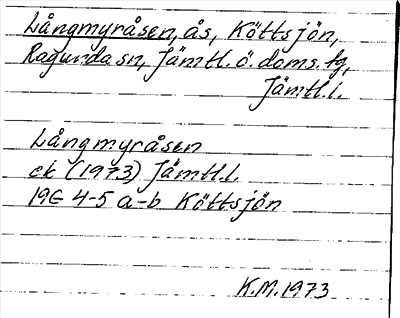 Långmyråsen, ås, Köttsjön,
Ragunda sn, Jämtl. ö. doms. tg,
Jämtl.l.
Långmyråsen
ek (1973) Jämtl.l.
19G 4-5 a-b Köttsjön
K.M. 1973